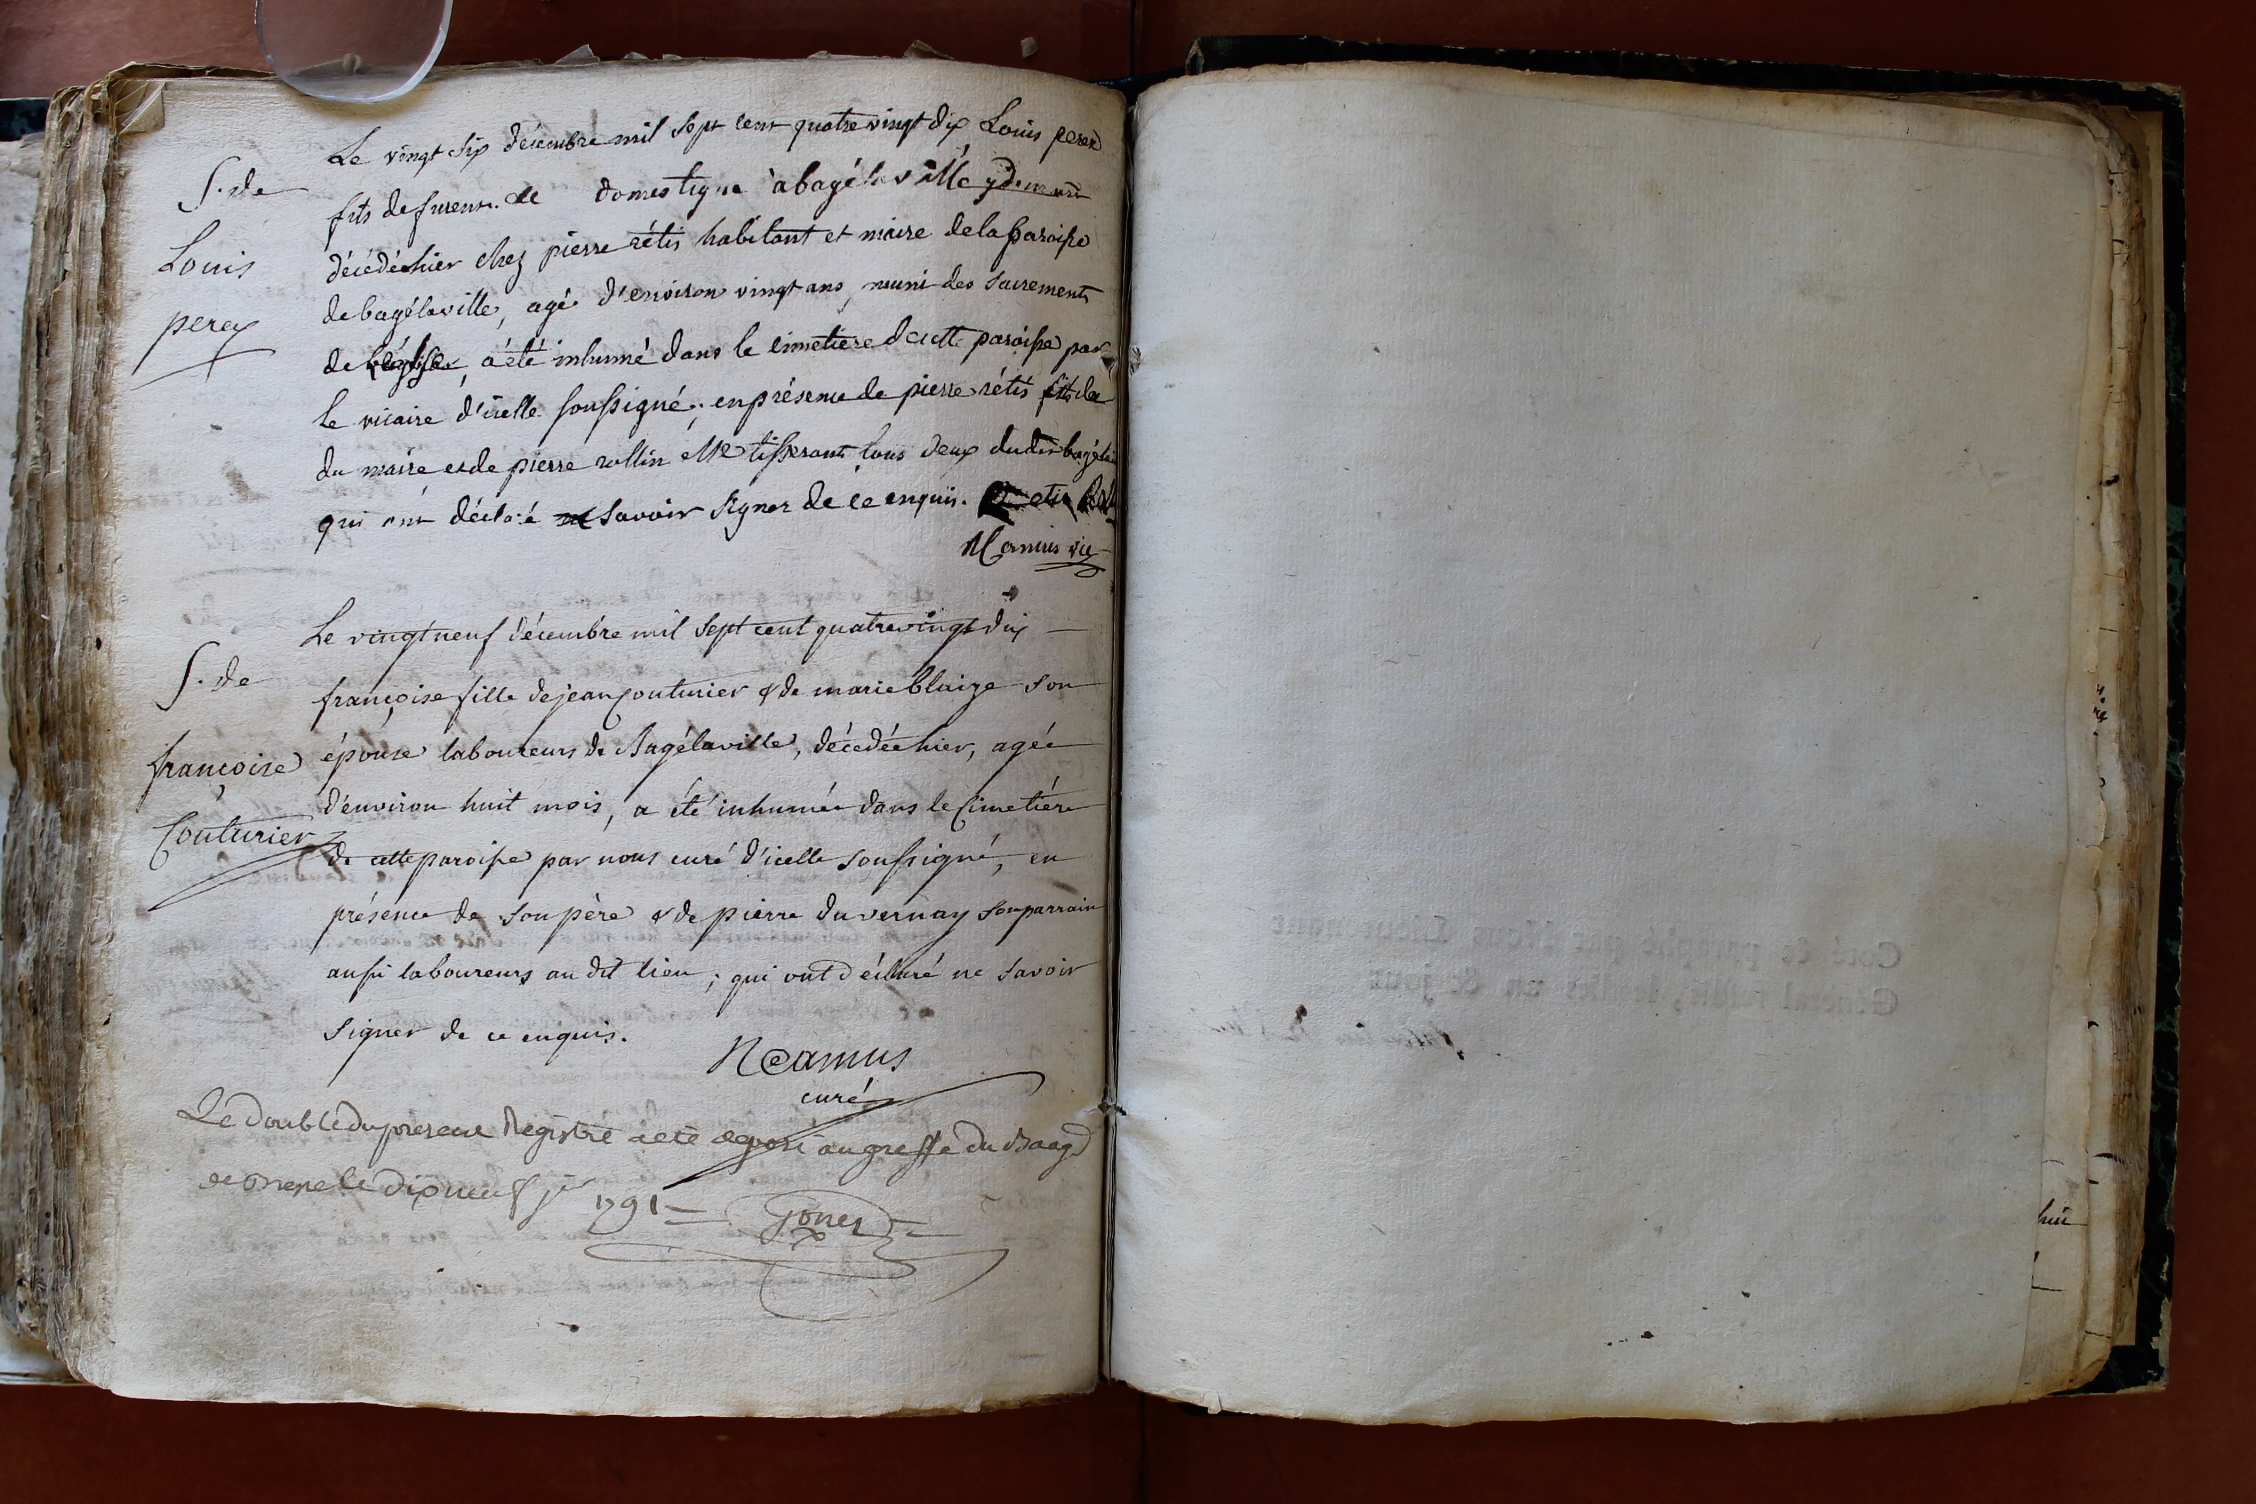 S. de
Louis
perex
Le vingt six décembre mil sept cent quatre vingt dix Louis perex
fils de domestique à bagé la ville y demeurt
décédé hier chez pierre rétis habitant et maire de la paroisse
de bagé la ville, agé d'environ vingt ans, muni des sacrements
de l'église, a été inhumé dans le cimetière de cette paroisse par
le vicaire d'icelle soussigné, en présence de pierre rétis fils
du maire et de pierre rollin tisserant tous deux dudit bagé
qui ont déclaré savoir signer de ce enquis.
N Camus vic
S. de
françoise
Couturier
Le vingt neuf décembre mil sept cent quatrevingt dix
françoise fille de jean Couturier & de marie blaize son
épouse laboureurs de Bagélaville, décédée hier, agée
d'environ huit mois, a été inhumée dans le Cimetière
de cette paroisse par nous curé d'icelle soussigné, en
présence de son père & de pierre duvernay son parrain
aussi laboureurs au dit lieu ; qui ont déclaré ne savoir
signer de ce enquis.
N Camus
curé
Le double du present Registre a ete deposé au greffe du Baag
de Bresse le dix neuf jer 1791
Coté & paraphé par Nous Lieutenant
Général susdit, dernier un & jour